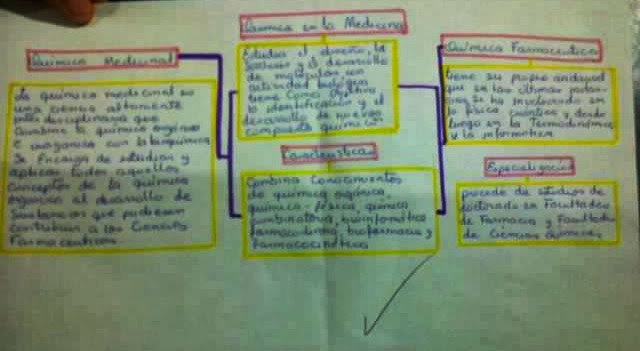 Química en la Medicina
Estudia el diseño, la
y el desarrollo
de moléculas con
actividad biológica
tiene como objetivo
la identificación y el
desarrollo de nuevos
compuesto químicos
Química Medicinal
La química medicinal es
una ciencia altamente
interdisciplinaria que
combina la química orgánica
e inorganica con la bioquímica
Se Encarga de estudiar y
aplicar todos aquellos
conceptos de la química
organica al desarrollo de
Sustancias que pudiesen
contribuir a las Ciencias
Farmaceuticas
Química Farmaceutica
tiene su propio
que en las últimas
se ha involucrado en
la física cuántica y desde
luego en la Termodinámica
y la informatica
Caracteristicas
Combina Conocimientos
de química orgánica,
química-física, química
combinatoria, bioinformática
biofarmacia y
Farmacocinética
Especialización
procede de estudios de
en Facultades
de Farmacia y Facultades
de Ciencias Químicas.